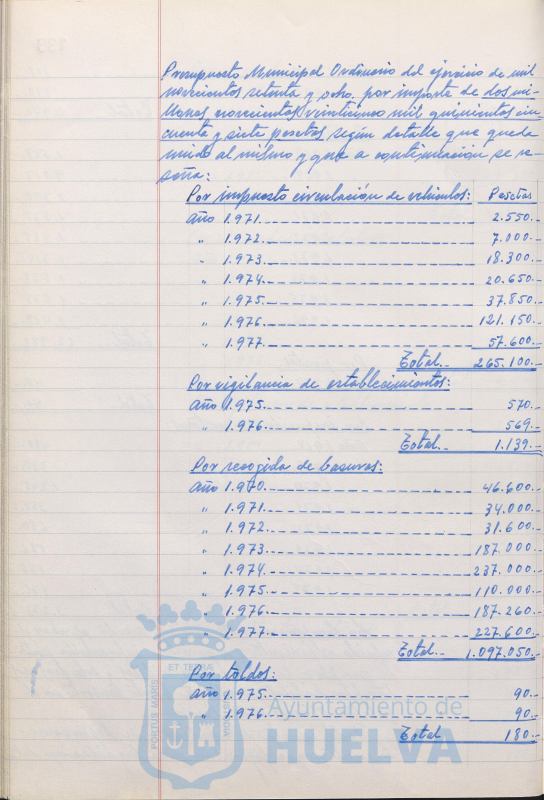 Presupuesto Municipal Ordinario del ejercicio de mil
novecientos setenta y ocho, por importe de dos mi-
llones novecientas veinticinco mil quinientas cin-
cuenta y siete pesetas según detalle que queda
unido al mismo y que a continuación se re-
seña:
Por impuesto circulación de vehículos: Pesetas
año 1.971. 2.550.-
" 1.972. 7.000.-
" 1.973. 18.300.-
" 1.974. 20.650.-
" 1.975. 37.850.-
" 1.976. 121.150.-
" 1.977. 57.600.-
Total.. 265.100.-
Por vigilancia de establecimientos:
año 1.975. 570.-
" 1.976. 569.-
Total. 1.139.-
Por recogida de basuras:
año 1.970. 46.600.-
" 1.971. 34.000.-
" 1.972. 31.600.-
" 1.973. 187.000.-
" 1.974. 237.000.-
" 1.975. 110.000.-
" 1.976. 187.260.-
" 1.977. 227.600.-
Total. 1.097.050.-
Por toldos:
año 1.975. 90.-
" 1.976. 90.-
Total 180.-
PORTUS MARIS
ET TERRÆ
Ayuntamiento de
HUELVA